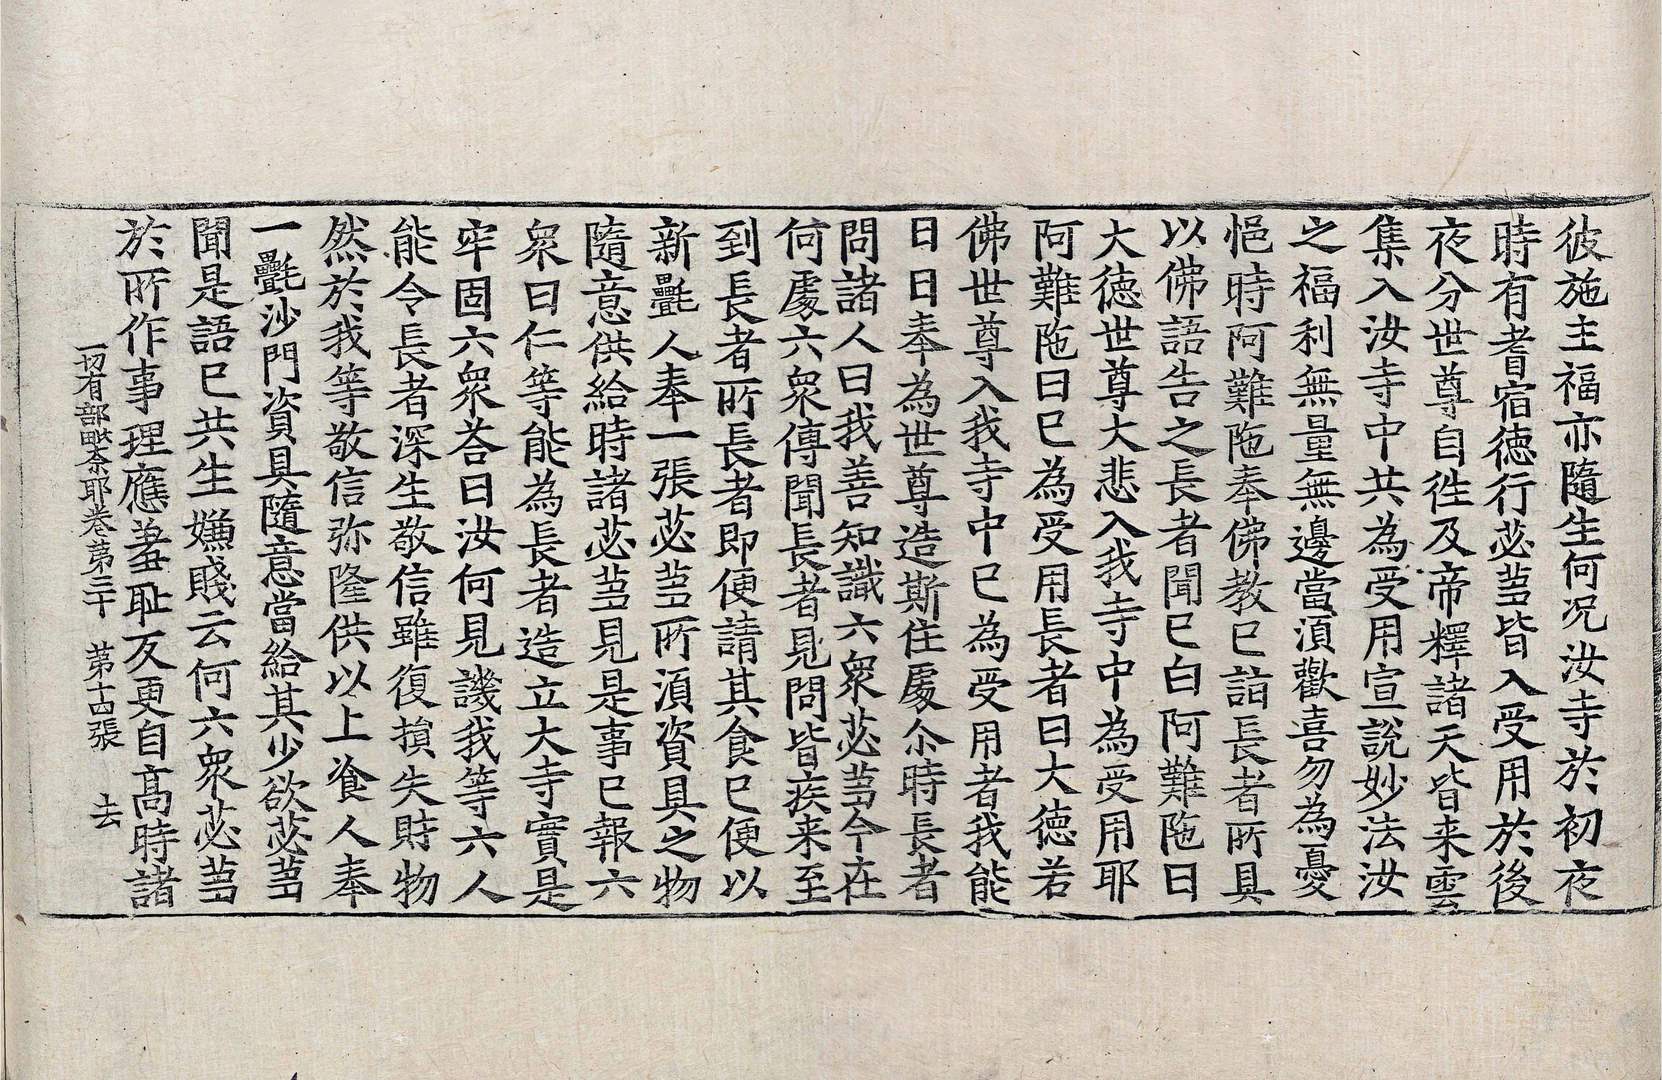 彼施主福亦隨生何況汝寺於初夜
時有耆宿德行苾芻皆入受用於後
夜分世尊自徃及帝釋諸天皆来雲
集入汝寺中共為受用宣說妙法汝
之福利無量無邊當湏歡喜勿為憂
悒時阿難陁奉佛教已詣長者所具
以佛語告之長者聞已白阿難陁曰
大德世尊大悲入我寺中為受用耶
阿難陁曰已為受用長者曰大德若
佛世尊入我寺中已為受用者我能
日日奉為世尊造斯住處尒時長者
問諸人曰我善知識六衆苾芻今在
何處六衆傳聞長者見問皆疾来至
到長者所長者即便請其食已便以
新㲲人奉一張苾芻所湏資具之物
隨意供給時諸苾芻見是事已報六
衆曰仁等能為長者造立大寺實是
牢固六衆荅曰汝何見譏我等六人
能令長者深生敬信雖復損失財物
然於我等敬信弥隆供以上飡人奉
一㲲沙門資具隨意當給其少欲苾芻
聞是語已共生嫌賤云何六衆苾芻
於所作事理應羞耻反更自高時諸
一切有部毗奈耶卷第三十　第十四張　去